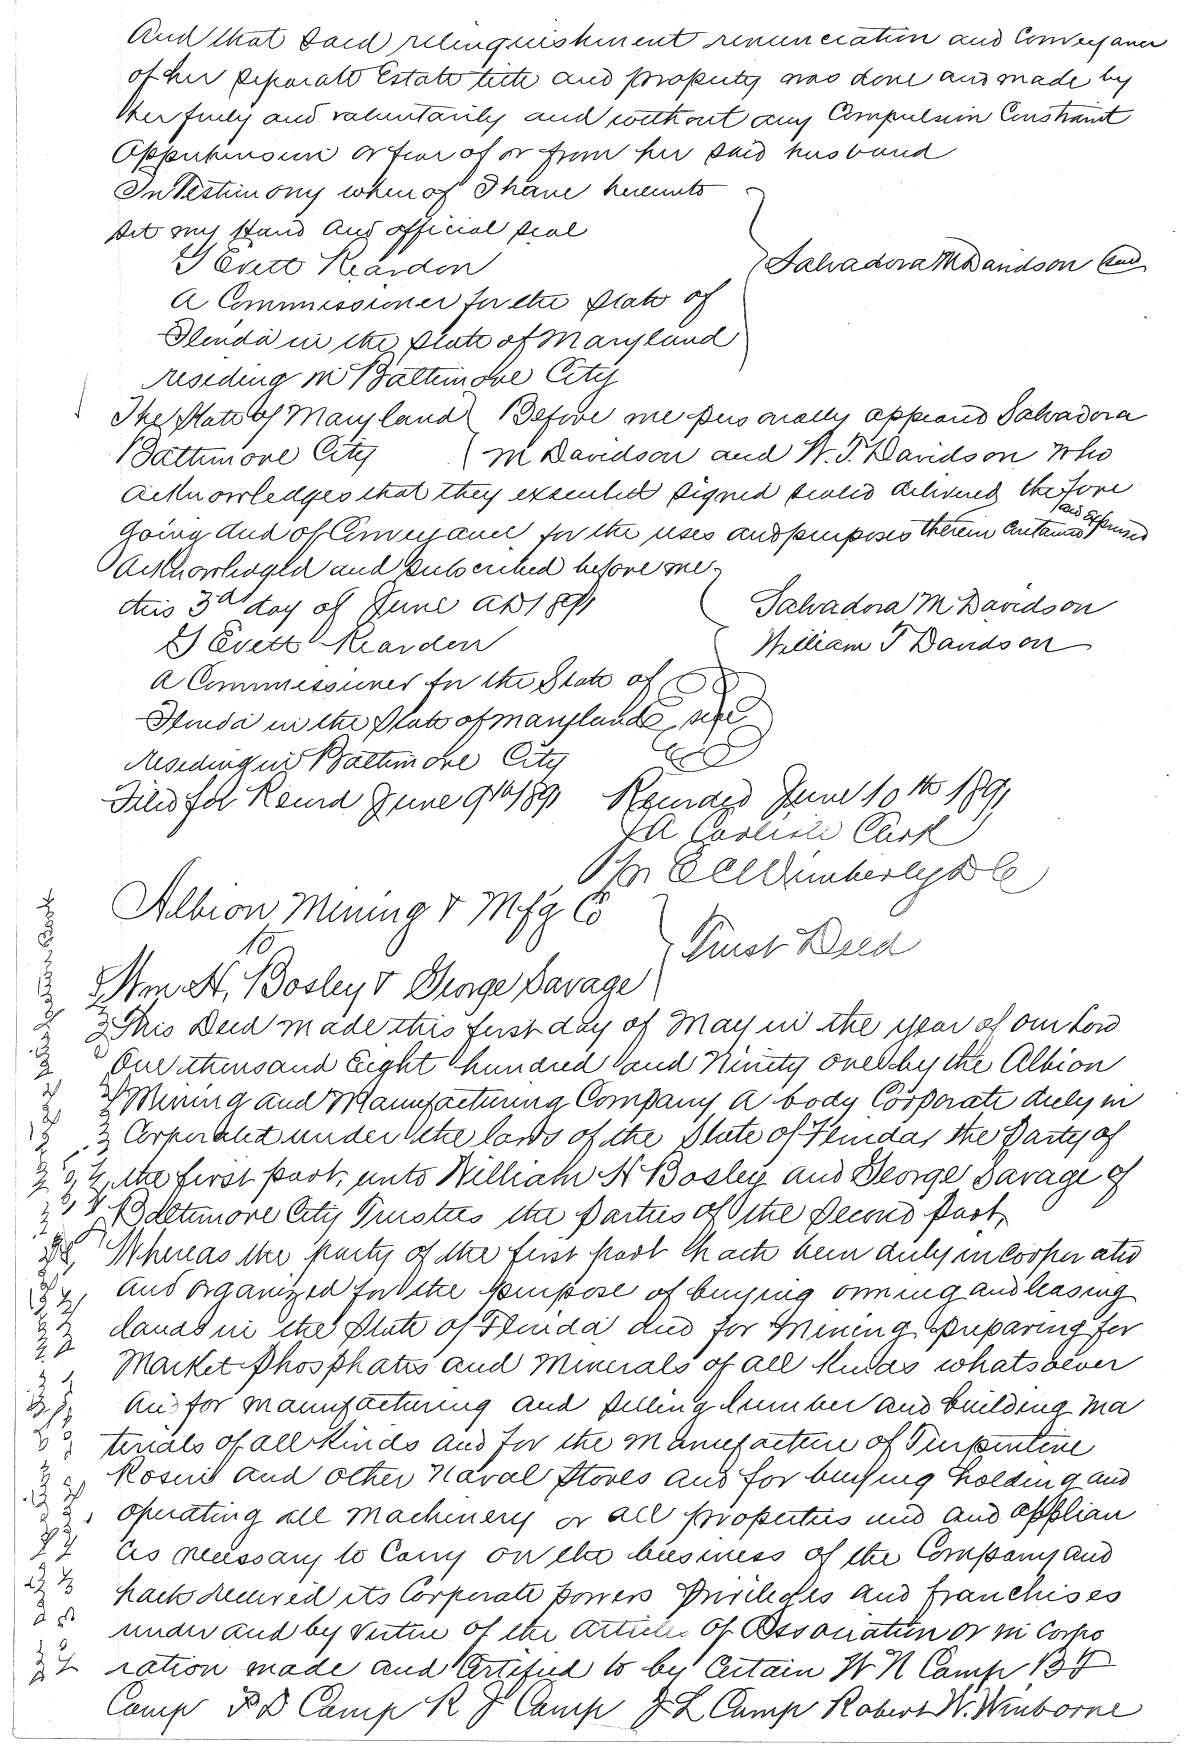 And that said relinquishment renunciation and Conveyance
of her separate Estate title and property was done and made by
her freely and voluntarily and without any Compulsion Constraint
Apprehension or fear of or from her said husband
In Testimony whereof I have hereunto
set my Hand and official seal
G Evett Reardon
Salvadora M Davidson seal
A Commissioner for the State of
Florida in the State of Maryland
residing in Baltimore City
The State of Maryland Before me personally appeared Salvadora
Baltimore City M Davidson and W. T. Davidson who
acknowledges that they executed signed sealed delivered the fore
going deed of Conveyance for the uses and purposes therein contained and expressed
Acknowledged and subscribed before me
this 3d day of June AD 1891 Salvadora M Davidson
G Evett Reardon William T Davidson
A Commissioner for the State of
Florida in the State of Maryland seal
residing in Baltimore City
Filed for Record June 9th 1891 Recorded June 10th 1891
JA Carlisle Clerk
Pr E C Wimberly D C
Albion Mining & Mfg Co
to
Trust Deed
Wm H. Bosley & George Savage
This Deed made this first day of May in the year of our Lord
One thousand Eight hundred and Ninety one by the Albion
Mining and Manufacturing Company a body Corporate duly in
Corporated under the laws of the State of Florida, the Party of
the first part, unto William H Bosley and George Savage of
Baltimore City Trustees the parties of the Second Part,
Whereas the party of the first part hath been duly incooperated
and organized for the purpose of buying owning and leasing
lands in the State of Florida and for Mining preparing for
Market Phosphates and Minerals of all kinds whatsoever
And for manufacturing and selling lumber and building ma
terials of all kinds and for the Manufacture of Turpentine
Rosin and other Naval Stores and for buying holding and
operating all Machinery or all properties and applian
ces necessary to Carry on the business of the Company and
hath received its Corporate powers privileges and franchises
under and by virtue of the Articles of Association or in Corpo
ration made and Certified to by Certain W N Camp B F
Camp P D Camp R J Camp J L Camp Robert W. Winborne